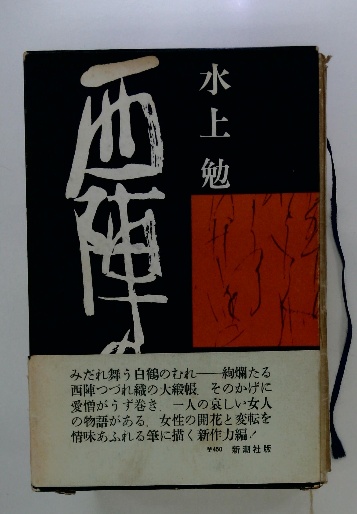 水上勉
西陣の
みだれ舞う白鶴のむれ――絢爛たる
西陣つづれ織の大緞帳。そのかげに
愛憎がうず巻き、一人の哀しい女人
の物語がある。女性の開花と変転を
情味あふれる筆に描く新作力編！
￥450 新潮社版